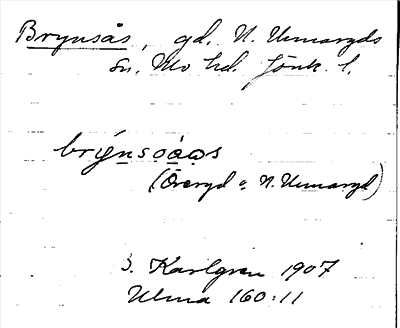 Brynsås, gd. N. Unnaryds
sn. Mo hd. Jönk. l.
brýnsọ́ạọs
(Öreryd o. N. Unnaryd)
B. Karlgren 1907
Ulma 160:11